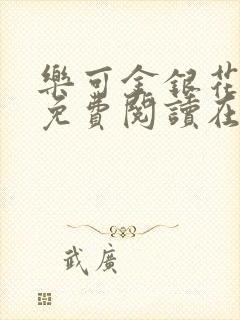 樂可金銀花
免費閱讀在
武廣